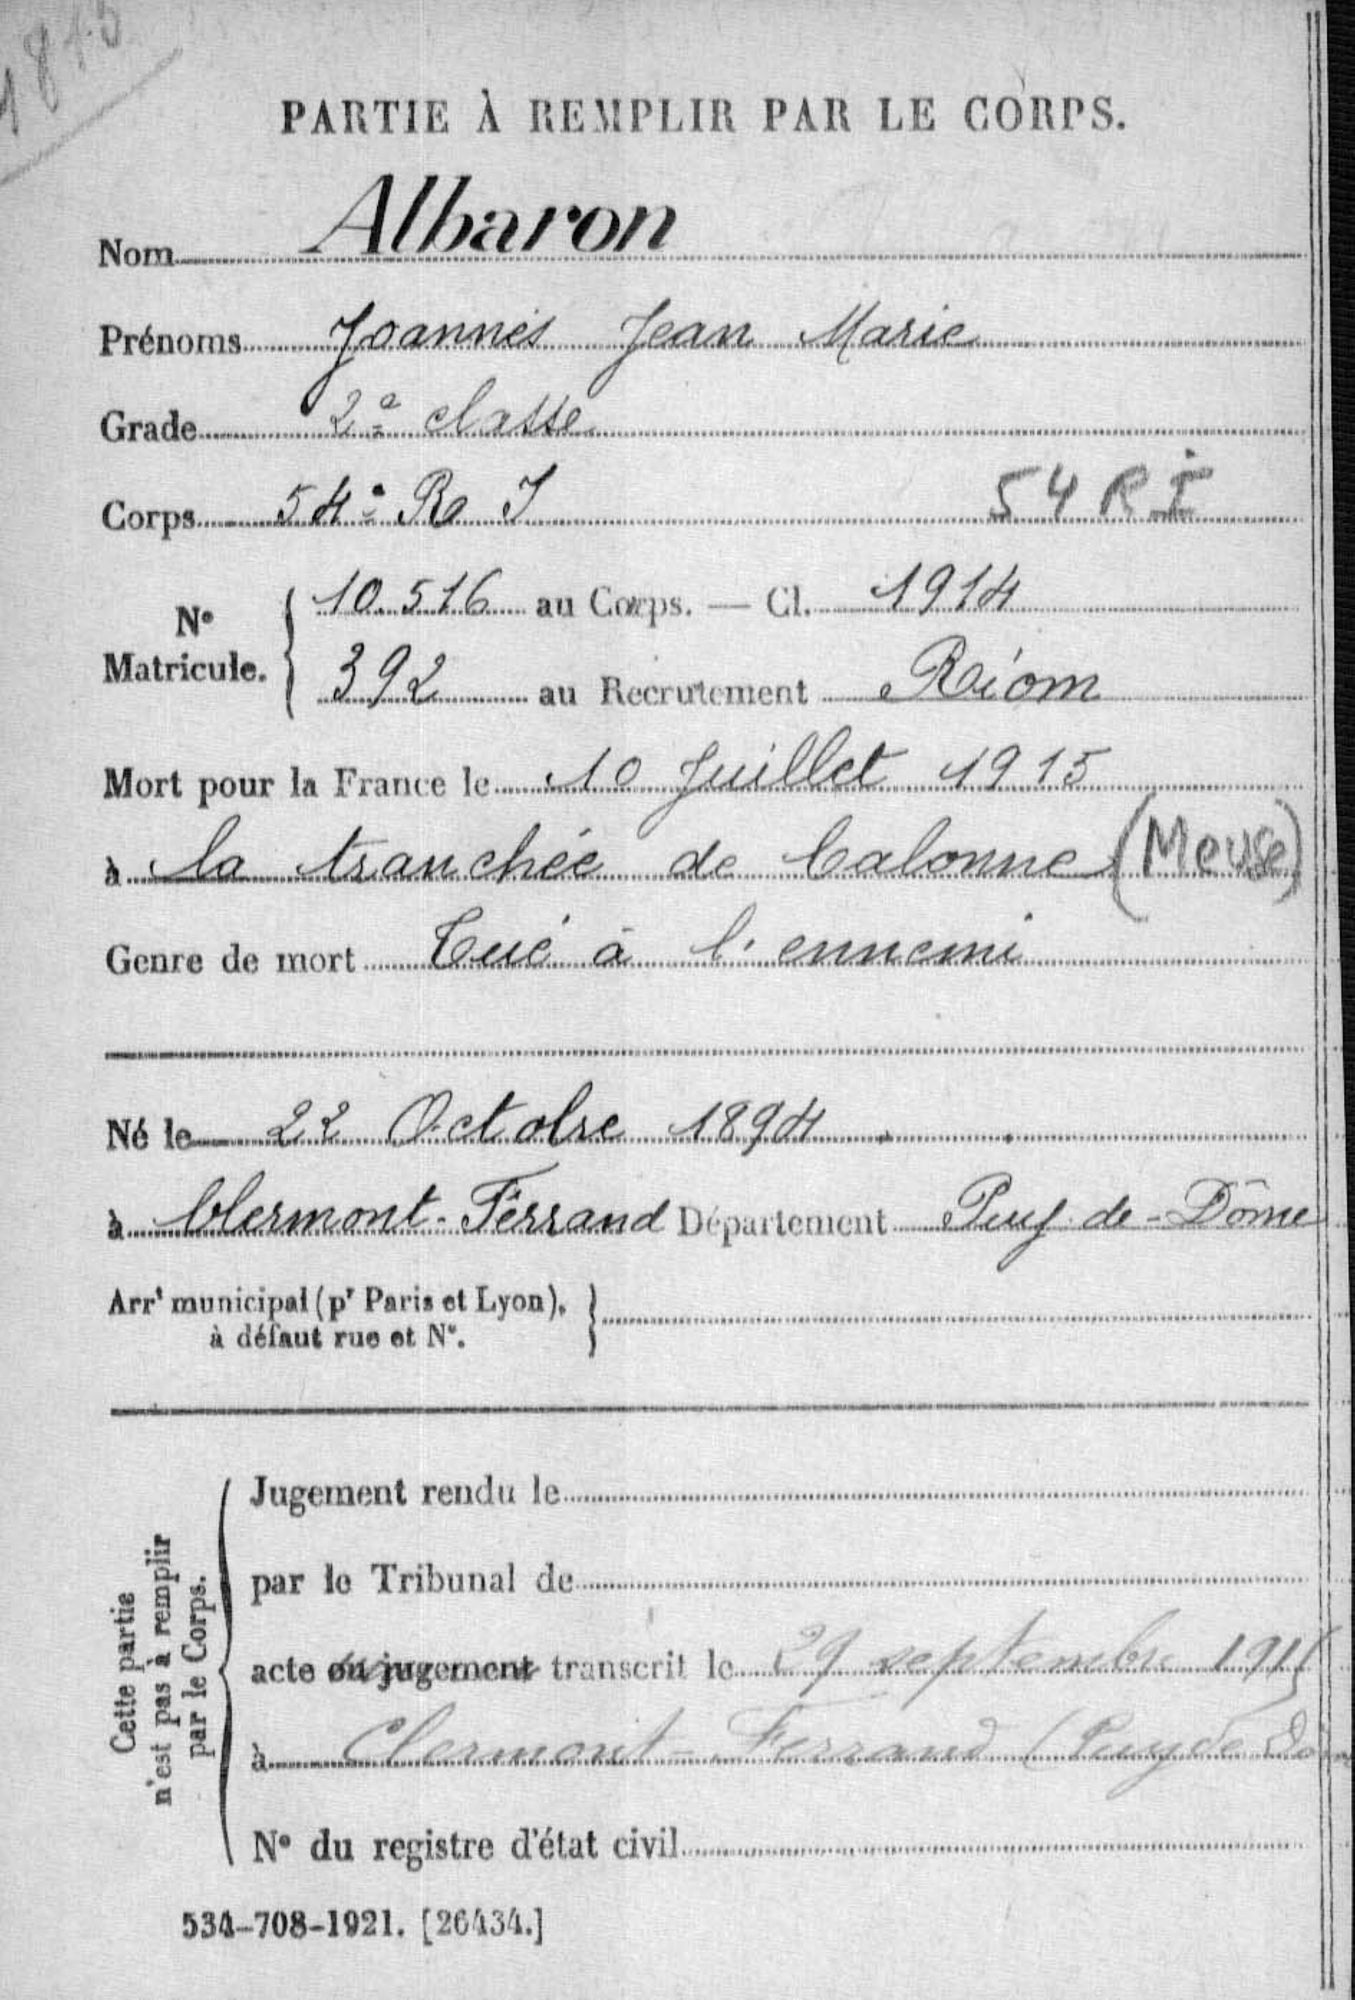 PARTIE À REMPLIR PAR LE CORPS.
Nom Albaron
Prénoms Joannès Jean Marie
Grade 2e classe
Corps 54e R I 54 RI
No Matricule. { 10.516 au Corps. — Cl. 1914
392 au Recrutement Riom
Mort pour la France le 10 Juillet 1915
à la tranchée de Calonne (Meuse)
Genre de mort Tué à l'ennemi
Né le 22 Octobre 1894
à Clermont-Ferrand Département Puy-de-Dôme
Arrt municipal (pr Paris et Lyon), }
à défaut rue et No.
Cette partie
n'est pas à remplir
par le Corps.
Jugement rendu le
par le Tribunal de
acte ou jugement transcrit le 29 septembre 1915
à Clermont-Ferrand (Puy de Dôm
No du registre d'état civil
534-708-1921. [26434.]